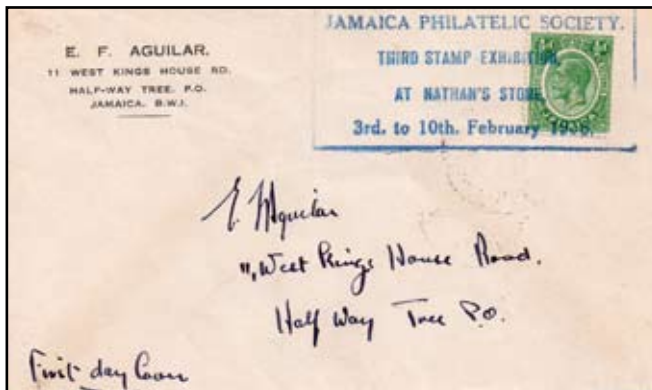 E. F. AGUILAR.
11 WEST KINGS HOUSE RD.
HALF-WAY TREE. P.O.
JAMAICA. B.W.I.
JAMAICA PHILATELIC SOCIETY.
THIRD STAMP EXHIBITION,
AT NATHAN'S STORE,
3rd. to 10th. February 1936.
E F Aguilar
11, West Kings House Road.
Half Way Tree P.O.
First day Cover